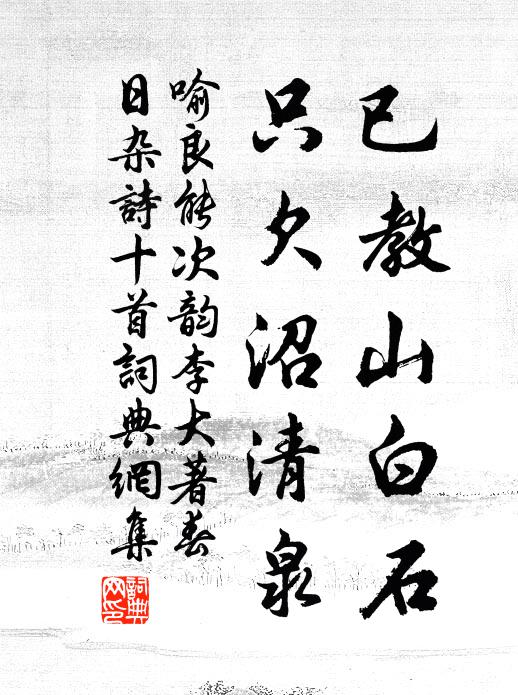 已教山白石
只欠沼清泉
喻良能次韵李大著春
日杂詩十首詞典網集
詞典
网印